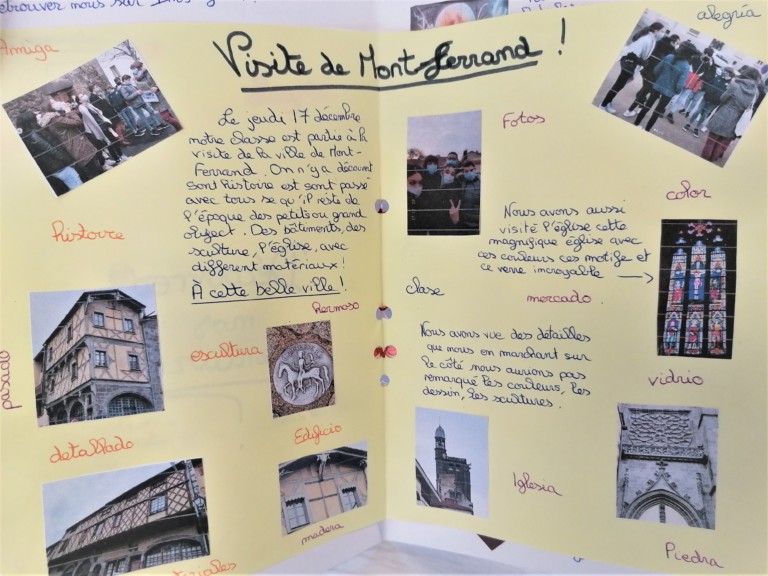 etrouver nous sur
Visite de Mont-Ferrand !
Amiga
alegría
Le jeudi 17 décembre
notre classe est partie à la
visite de la ville de Mont-
Ferrand. On n'y a découvert
sont histoire est sont passé
avec tous se qu'il reste de
l'époque des petits ou grand
object. Des bâtiments, des
sculture, l'église, avec
différent matériaux !
À cette belle ville !
histoire
hermoso
escultura
pasado
detallado
Edificio
madera
teriales
Fotos
color
Nous avons aussi
visité l'église cette
magnifique église avec
ces couleurs ces motifs et
ce verre incroyable →
clase
mercado.
Nous avons vue des détailles
que nous en marchant sur
le côté nous aurions pas
remarqué les couleurs, les
dessin, les scultures.
vidrio
Iglesia
Piedra